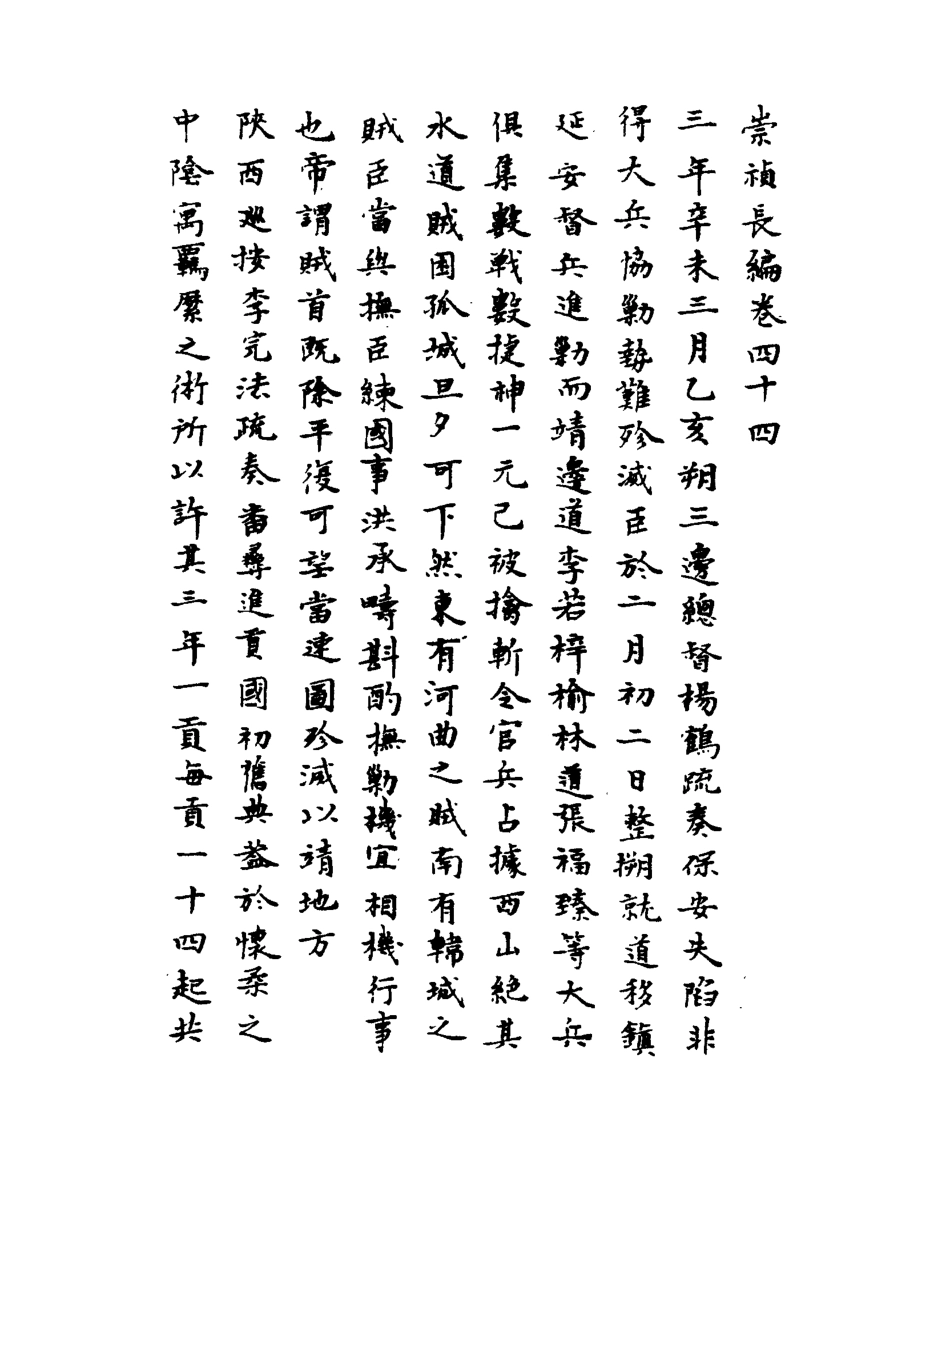 崇禎長編卷四十四
三年辛未三月乙亥朔三邊總督楊鶴疏奏保安失陷非
得大兵協勦勢難殄滅臣於二月初二日整搠就道移鎮
延安督兵進勦而靖邊道李若梓榆林道張福臻等大兵
俱集數戰數捷神一元已被擒斬令官兵占據西山絕其
水道賊困孤城旦夕可下然東有河曲之賊南有韓城之
賊臣當與撫臣練國事洪承疇斟酌撫勦機宜相機行事
也帝謂賊首既除平復可望當速圖殄滅以靖地方
陝西巡按李完法疏奏畨彞進貢國初舊典葢於懷柔之
中隂寓羈縻之術所以許其三年一貢每貢一十四起共